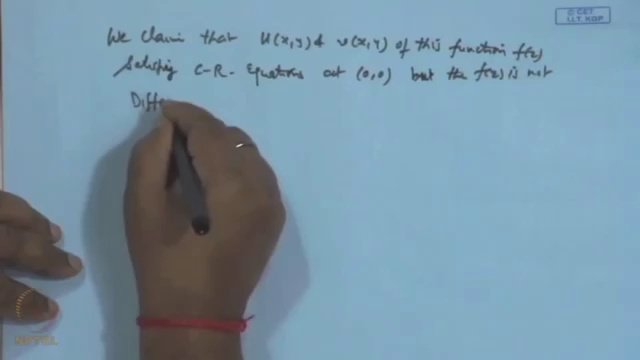 © CET
I.I.T. KGP
We claim that u(x,y) & v(x,y) of this function f(z)
Satisfy C-R- Equations at (0,0) but the f(z) is not
Diffe
NPTEL